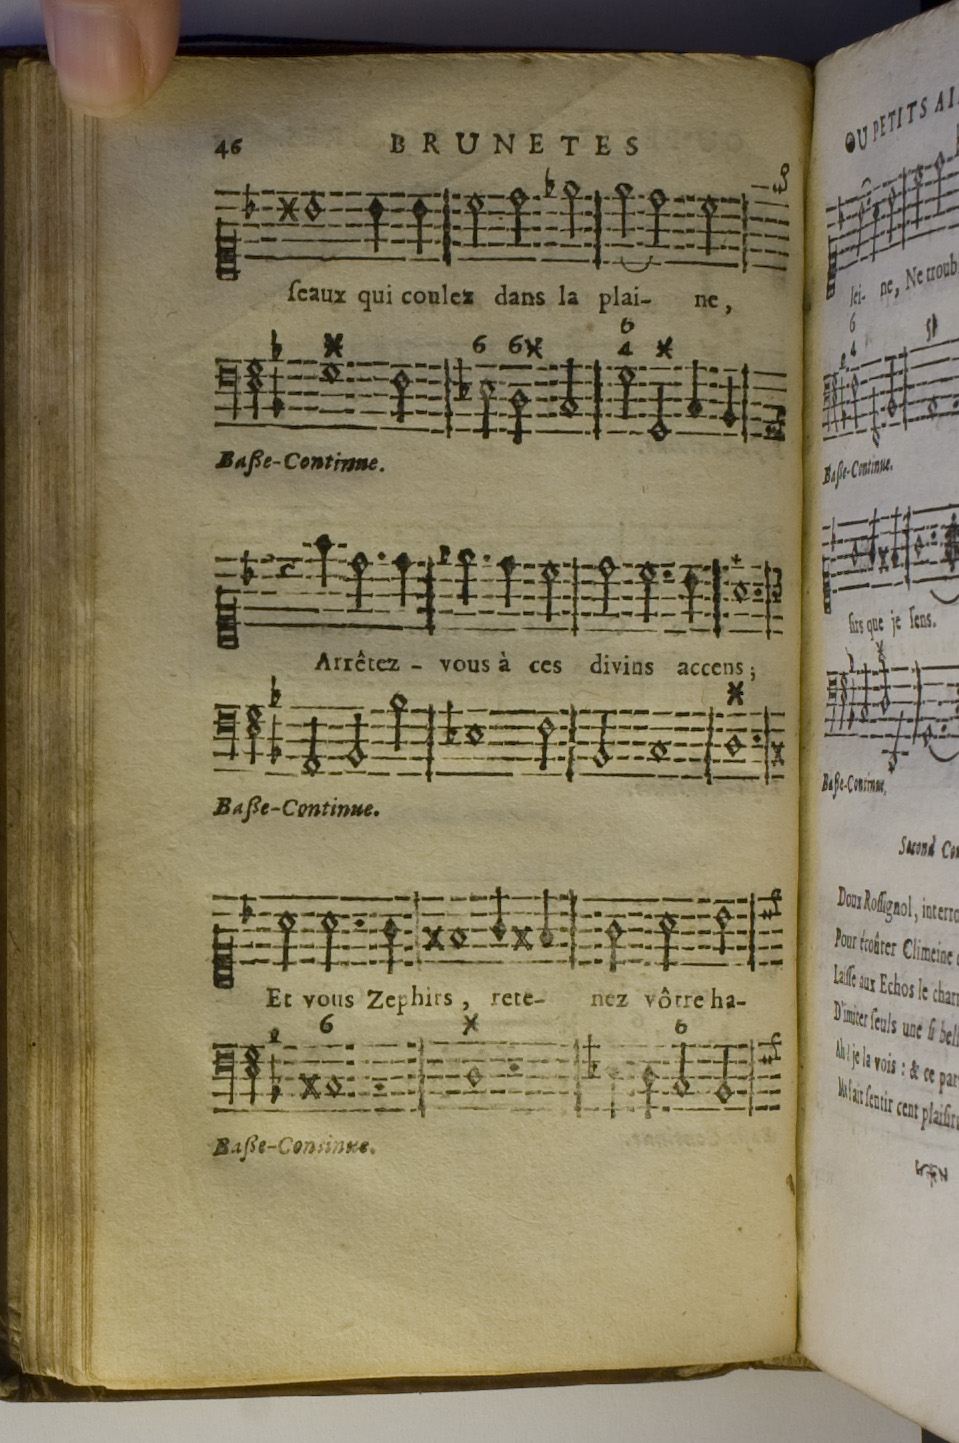 46 BRUNETES
ſeaux qui coulez dans la plai- ne,
6 6 6
4
Baſſe-Continue.
Arrêtez - vous à ces divins accens;
Baſſe-Continue.
Et vous Zephirs, rete- nez vôtre ha-
6 6
Baſſe-Continue.
OU PETITS AI
lei- ne, Ne troub
6
4
Baſſe-Continue.
ſirs que je ſens.
Baſſe-Continue.
Second Co
Doux Roſſignol, interro
Pour écoûter Climeine
Laiſſe aux Echos le char
D'imiter ſeuls une ſi bel
Ah! je la vois: & ce par
M'a fait ſentir cent plaiſirs